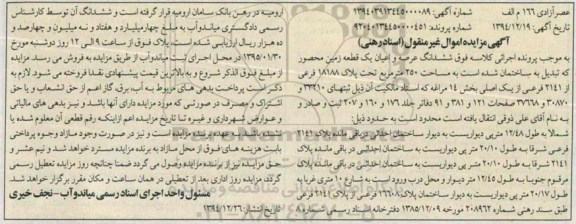 عصرآزادی ۱۶۶ م الف    شماره آگهی: ۱۳۹۴۰۳۹۱۳۴۴۵۰۰۰۰۸۹
تاریخ آگهی: ۱۳۹۴/۱۲/۱۹    شماره پرونده: ۹۲۰۴۰۲۳۴۴۵۰۰۰۴۵۱
آگهی مزایده اموال غیر منقول (اسناد رهنی)
به موجب پرونده اجرائی کلاسه فوق ششدانگ عرصه و اعیان یک قطعه زمین محصور
که تبدیل به ساختمان شده است به مساحت ۲۵۰ مترمربع تحت پلاک ۱۸۱۸۸ فرعی
از ۲۱۴۱ فرعی از یک اصلی بخش ۱۴ مراغه که اسناد مالکیت آن ذیل ثبتهای ۳۳۲۱۰ و
۳۰۸۷۰ و ۳۷۶۶۸ صفحات ۱۲۱ و ۳۸۱ و ۹۱ دفاتر جلد ۱۷۶ و ۱۶۰ و ۲۰۷ ثبت و صادر و
به نام آقای علی ذوقی انتقال یافته است محدود است به حدود ذیل:
شمالا به طول ۱۲/۴۸ متر پی دیواریست به دیوار ساختمان احداثی در باقی مانده پلاک ۲۱۴۱
فرعی شرقا به طول ۲۰/۱۰ متر پی دیواریست به ساختمان احداثی در باقی مانده پلاک
۲۱۴۱ شرقا به طول ۲۰/۱۰ متر پی دیواریست به ساختمان احداثی در باقی مانده پلاک
مرقوم جنوبا به طول ۱۲/۴۵ متر دیوار و محل درب ورود است به شارع ۱۰ متری غربا به
طول ۲۰/۱۷ متر پی دیواریست به دیوار ساختمان پلاک ۱۶۶۰۰ فرعی از ۲۱۴۱ فرعی
طبق سند رهنی شماره ۲۰۸۹۶۲ مورخه ۱۳۸۵/۱۲/۰۹ دفترخانه اسناد رسمی شماره ۸
ارومیه در رهن بانک سامان ارومیه قرار گرفته است و ششدانگ آن توسط کارشناس
رسمی دادگستری میاندوآب به مبلغ چهار میلیارد و هفتاد و نه میلیون و چهارصد و
ده هزار ریال ارزیابی شده است، پلاک فوق از ساعت ۹ الی ۱۲ روز دوشنبه مورخ
۱۳۹۵/۰۱/۳۰ در محل اجرای ثبت میاندوآب از طریق مزایده به فروش می رسد. مزایده
از مبلغ فوق الذکر شروع و به بالاترین قیمت پیشنهادی نقدا فروخته می شود. لازم به
ذکر است پرداخت بدهی های مربوط به آب، برق، گاز اعم از حق انشعاب و یا حق
اشتراک و مصرف در صورتی که مورد مزایده دارای آنها باشد و نیز بدهی های مالیاتی
و عوارض شهرداری و غیره تا تاریخ مزایده اعم از اینکه رقم قطعی آن معلوم شده یا
بابت هزینه های فوق از محل مازاد به برنده مزایده مسترد خواهد شد و نیم عشر و
حق مزایده نیز از برنده مزایده وصول می گردد ضمنا چنانچه روز مزایده تعطیل رسمی
گردد مزایده روز اداری بعد از تعطیلی در همان ساعت و مکان مقرر برگزار خواهد شد.
مسئول واحد اجرای اسناد رسمی میاندوآب - نجف خیری
تاریخ انتشار: ۱۳۹۴/۱۲/۲۶